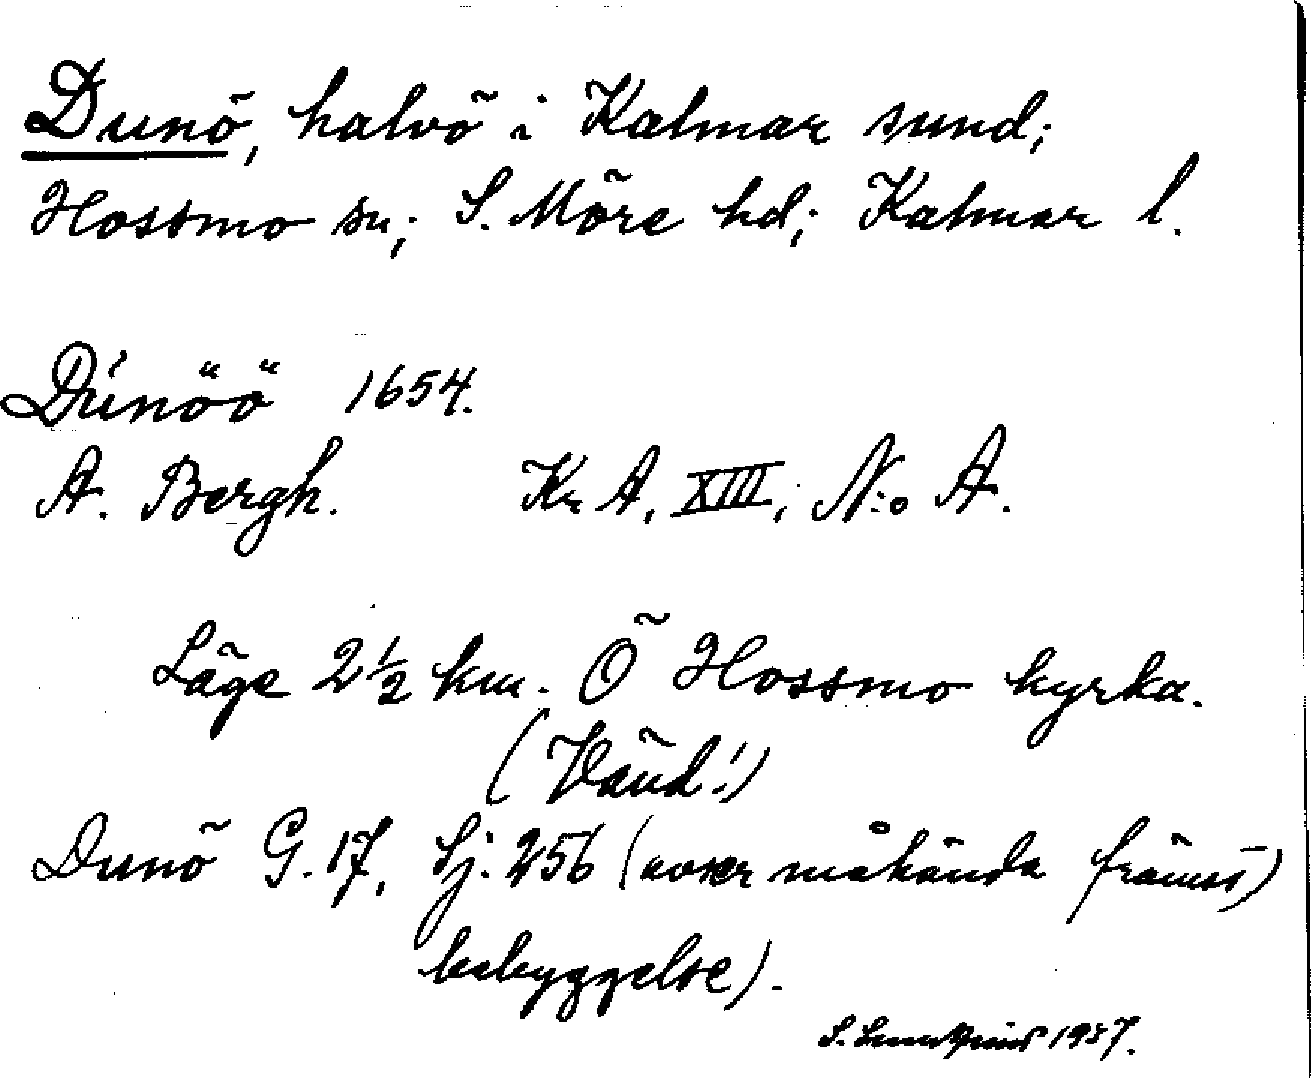 Dunö, halvö i Kalmar sund;
Hossmo sn; S. Möre hd; Kalmar l.
Dúnöö 1654.
A. Bergh. Kr A, XIII, N:o A.
Läge 2 1/2 km. Ö Hossmo kyrka.
(Vänd!)
Dunö G. 17, Sj. 256 (avser måhända främst)
bebyggelse).
S. 1937.